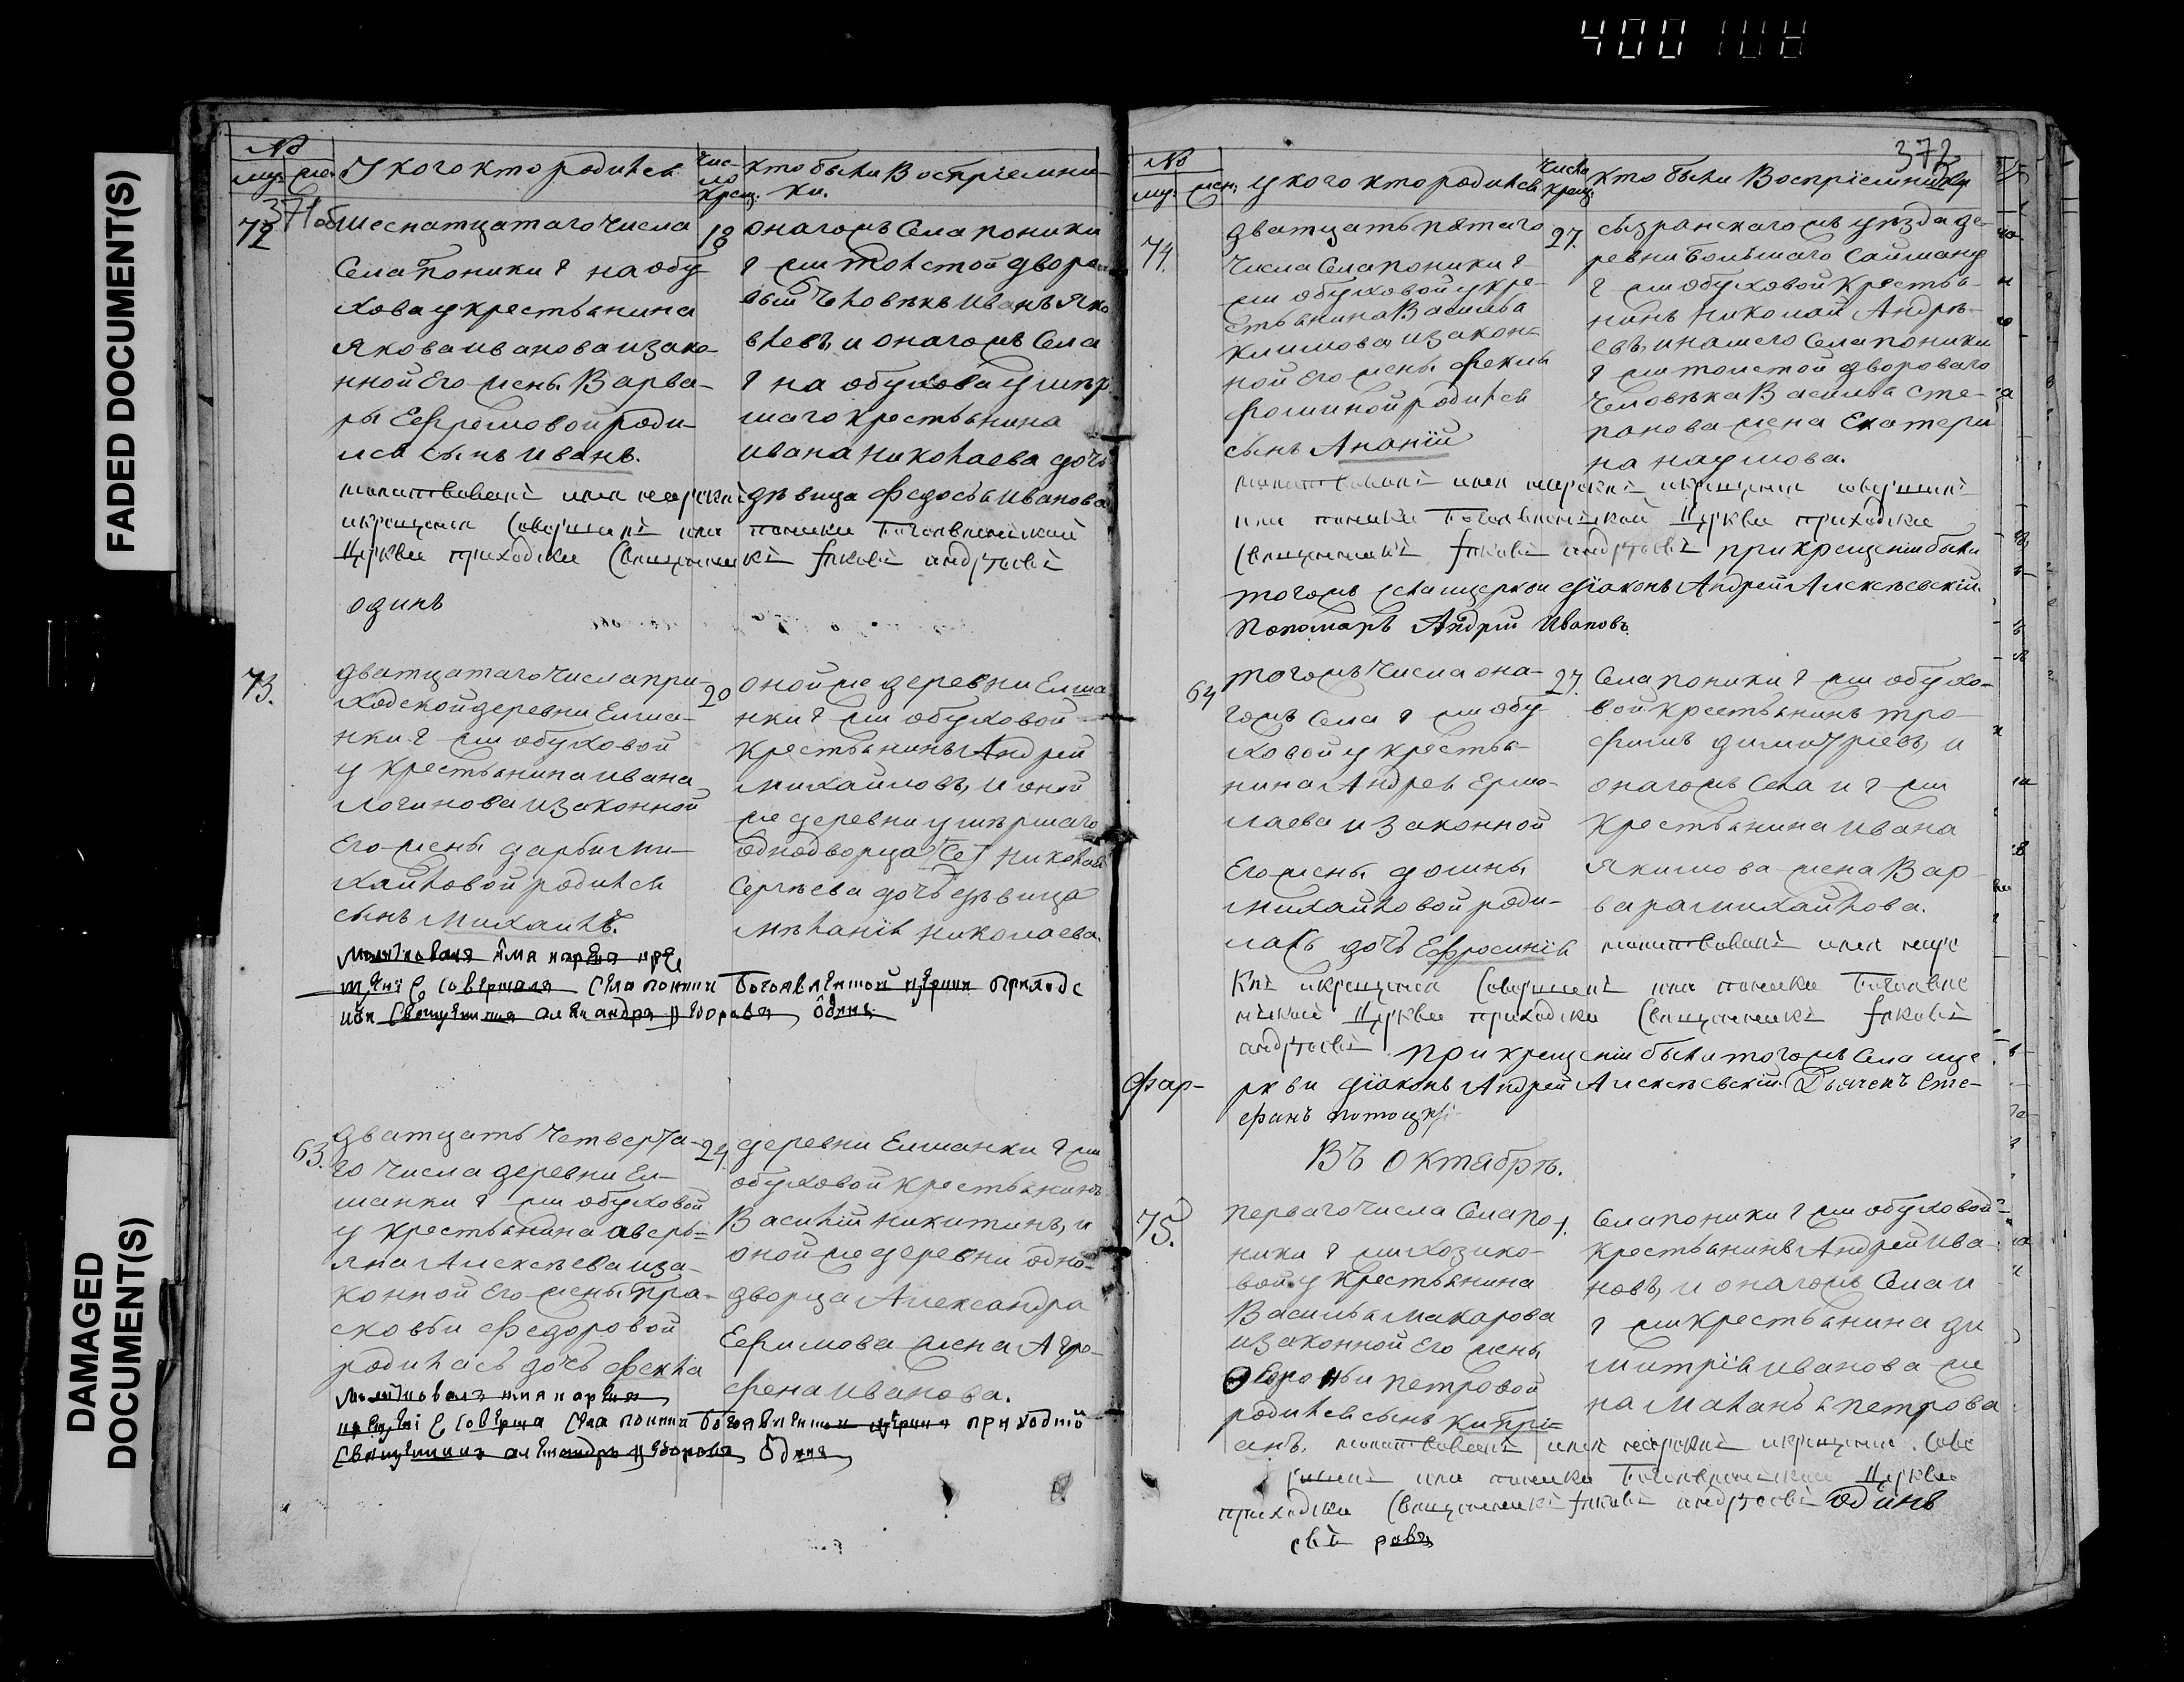 400 108
FADED DOCUMENT(S)
DAMAGED
DOCUMENT(S)
№
му. же. У кого кто родился
Чис-
ло
Крещ.
кто были Восприемни-
ки.
371об
72
Шеснатцатаго Числа
Села поники г на обу
хова у крестьянина
Якова иванова изако-
нной Его жены Варва-
ры Ефремовой роди-
лся сынъ иванъ.
18
онагожъ Села поники
г жи Толстой дворо
вый Человѣкъ иванъ Яко
влевъ, и онагожъ Села
г на обухова умер
шаго крестьянина
ивана николаева дочь
дѣвица Федосья иванова
молитвовалъ имя нарекъ
икрещение Совершилъ Села поники Богоявленской
Церкви приходский Священникъ Іаковъ андреевъ
одинъ
73.
дватцатаго Числа при-
ходской деревни Елша-
нки г жи обуховой
у крестьянина ивана
логинова изаконной
Его жены дарьи ми-
хайловой родился
сынъ михаилъ.
20
оной же деревни Елша
нки г жи обуховой
крестьянинъ Андрей
михайловъ, и оной
же деревни умершаго
однодворца Се николая
Сергѣева дочь дѣвица
мѣланія николаева.
молитвовалъ имя нарекъ
Совершалъ Села поники Богоявленской церкви
Священникъ александръ одинъ
63.
дватцать четверта-
го Числа деревни Ел-
шанки г жи обуховой
у крестьянина аверь=
яна Алексѣева иза-
конной Его жены Пра-
сковьи Федоровой
родилась дочь Фекла
24.
деревни Елшанки г жи
обуховой крестьянинъ
Василій никитинъ, и
оной же деревни одно-
дворца Александра
Ефимова жена Агро-
фена иванова.
молитвовалъ имя нарекъ
Села поники Богоявленской церкви приходской
Священникъ александръ одинъ
372
№
му. жен. у кого кто родился
Числа
Крещ.
кто были Восприемники
74.
дватцать пятаго
Числа Села поники г
жи обуховой у кре-
стьянина Василья
климова изакон=
ной Его жены Феклы
Фоминой родился
сынъ Ананій
27.
сызранскагожъ уезда де
ревни Большаго Саймана
г жи обуховой крестья-
нинъ николай Андрѣ-
евъ, и нашего Села поники
г жи толстой дворового
Человѣка Василья Сте-
панова жена Екатери
на наумова.
молитвовалъ имя нарекъ икрещение совершилъ
Села поники Богоявленской Церкви приходский
Священникъ Іаковъ андреевъ при крещеніи были
тогожъ села церкви діаконъ Андрей Алексѣевскій.
Пономарь Андрей Ивановъ.
64
тогожъ Числа она-
гожъ Села г жи обу
ховой у крестья-
нина Андрея Ермо-
лаева изаконной
Его жены домны
михайловой роди-
лась дочь Ефросинія
27.
Села поники г жи обухо-
вой крестьянинъ тро-
фимъ димитріевъ, и
онагожъ Села и г жи
крестьянина ивана
Якимова жена Вар-
вара михайлова.
молитвовалъ имя наре
къ икрещение Совершилъ Села поники Богоявле
нской Церкви приходский Священникъ Іаковъ
андреевъ. при крещеніи были тогожъ Села це
ркви діаконъ Андрей Алексѣевскій. Дьячекъ Сте-
фанъ
Фар-
Въ Октябрѣ.
75.
перваго Числа Села по
ники г жи хозико-
вой у крестьянина
Василья макарова
изаконной Его жены
петровой
родился сынъ Кипрі=
анъ.
1.
Села поники г жи обуховой
крестьянинъ Андрей Ива-
новъ, и онагожъ Села и
г жи крестьянина ди
митрія иванова же
на маланья петрова
молитвовалъ имя нарекъ икрещение Сове
ршилъ Села поники Богоявленской Церкви
приходский Священникъ Іаковъ андреевъ одинъ